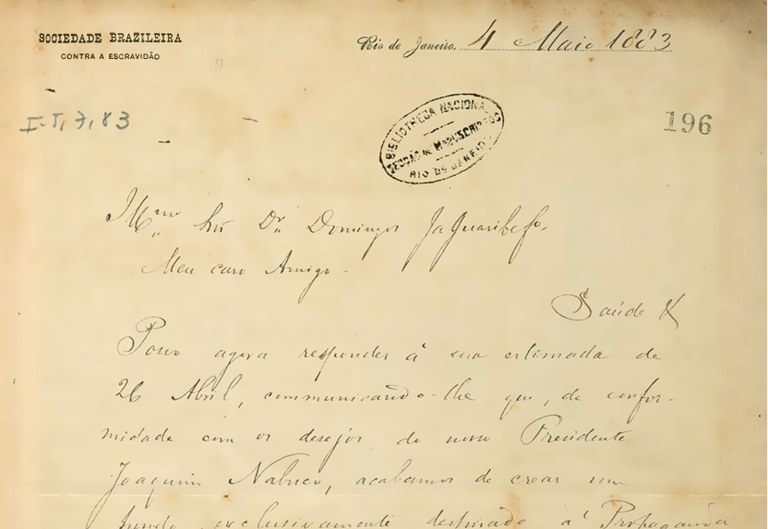 SOCIEDADE BRAZILEIRA
CONTRA A ESCRAVIDÃO
Rio de Janeiro, 4 Maio 1883
I-5,7,83
BIBLIOTHECA NACIONAL
SECÇÃO DE MANUSCRIPTOS
RIO DE JANEIRO
196
Illmo Snr Dr Domingos Jaguaribe Fo
Meu caro Amigo
Saúde &
Posso agora responder á sua estimada de
26 Abril, communicando-lhe que, de confor-
midade com os desejos do nosso Presidente
Joaquim Nabuco, acabamos de crear um
fundo exclusivamente destinado á Propaganda